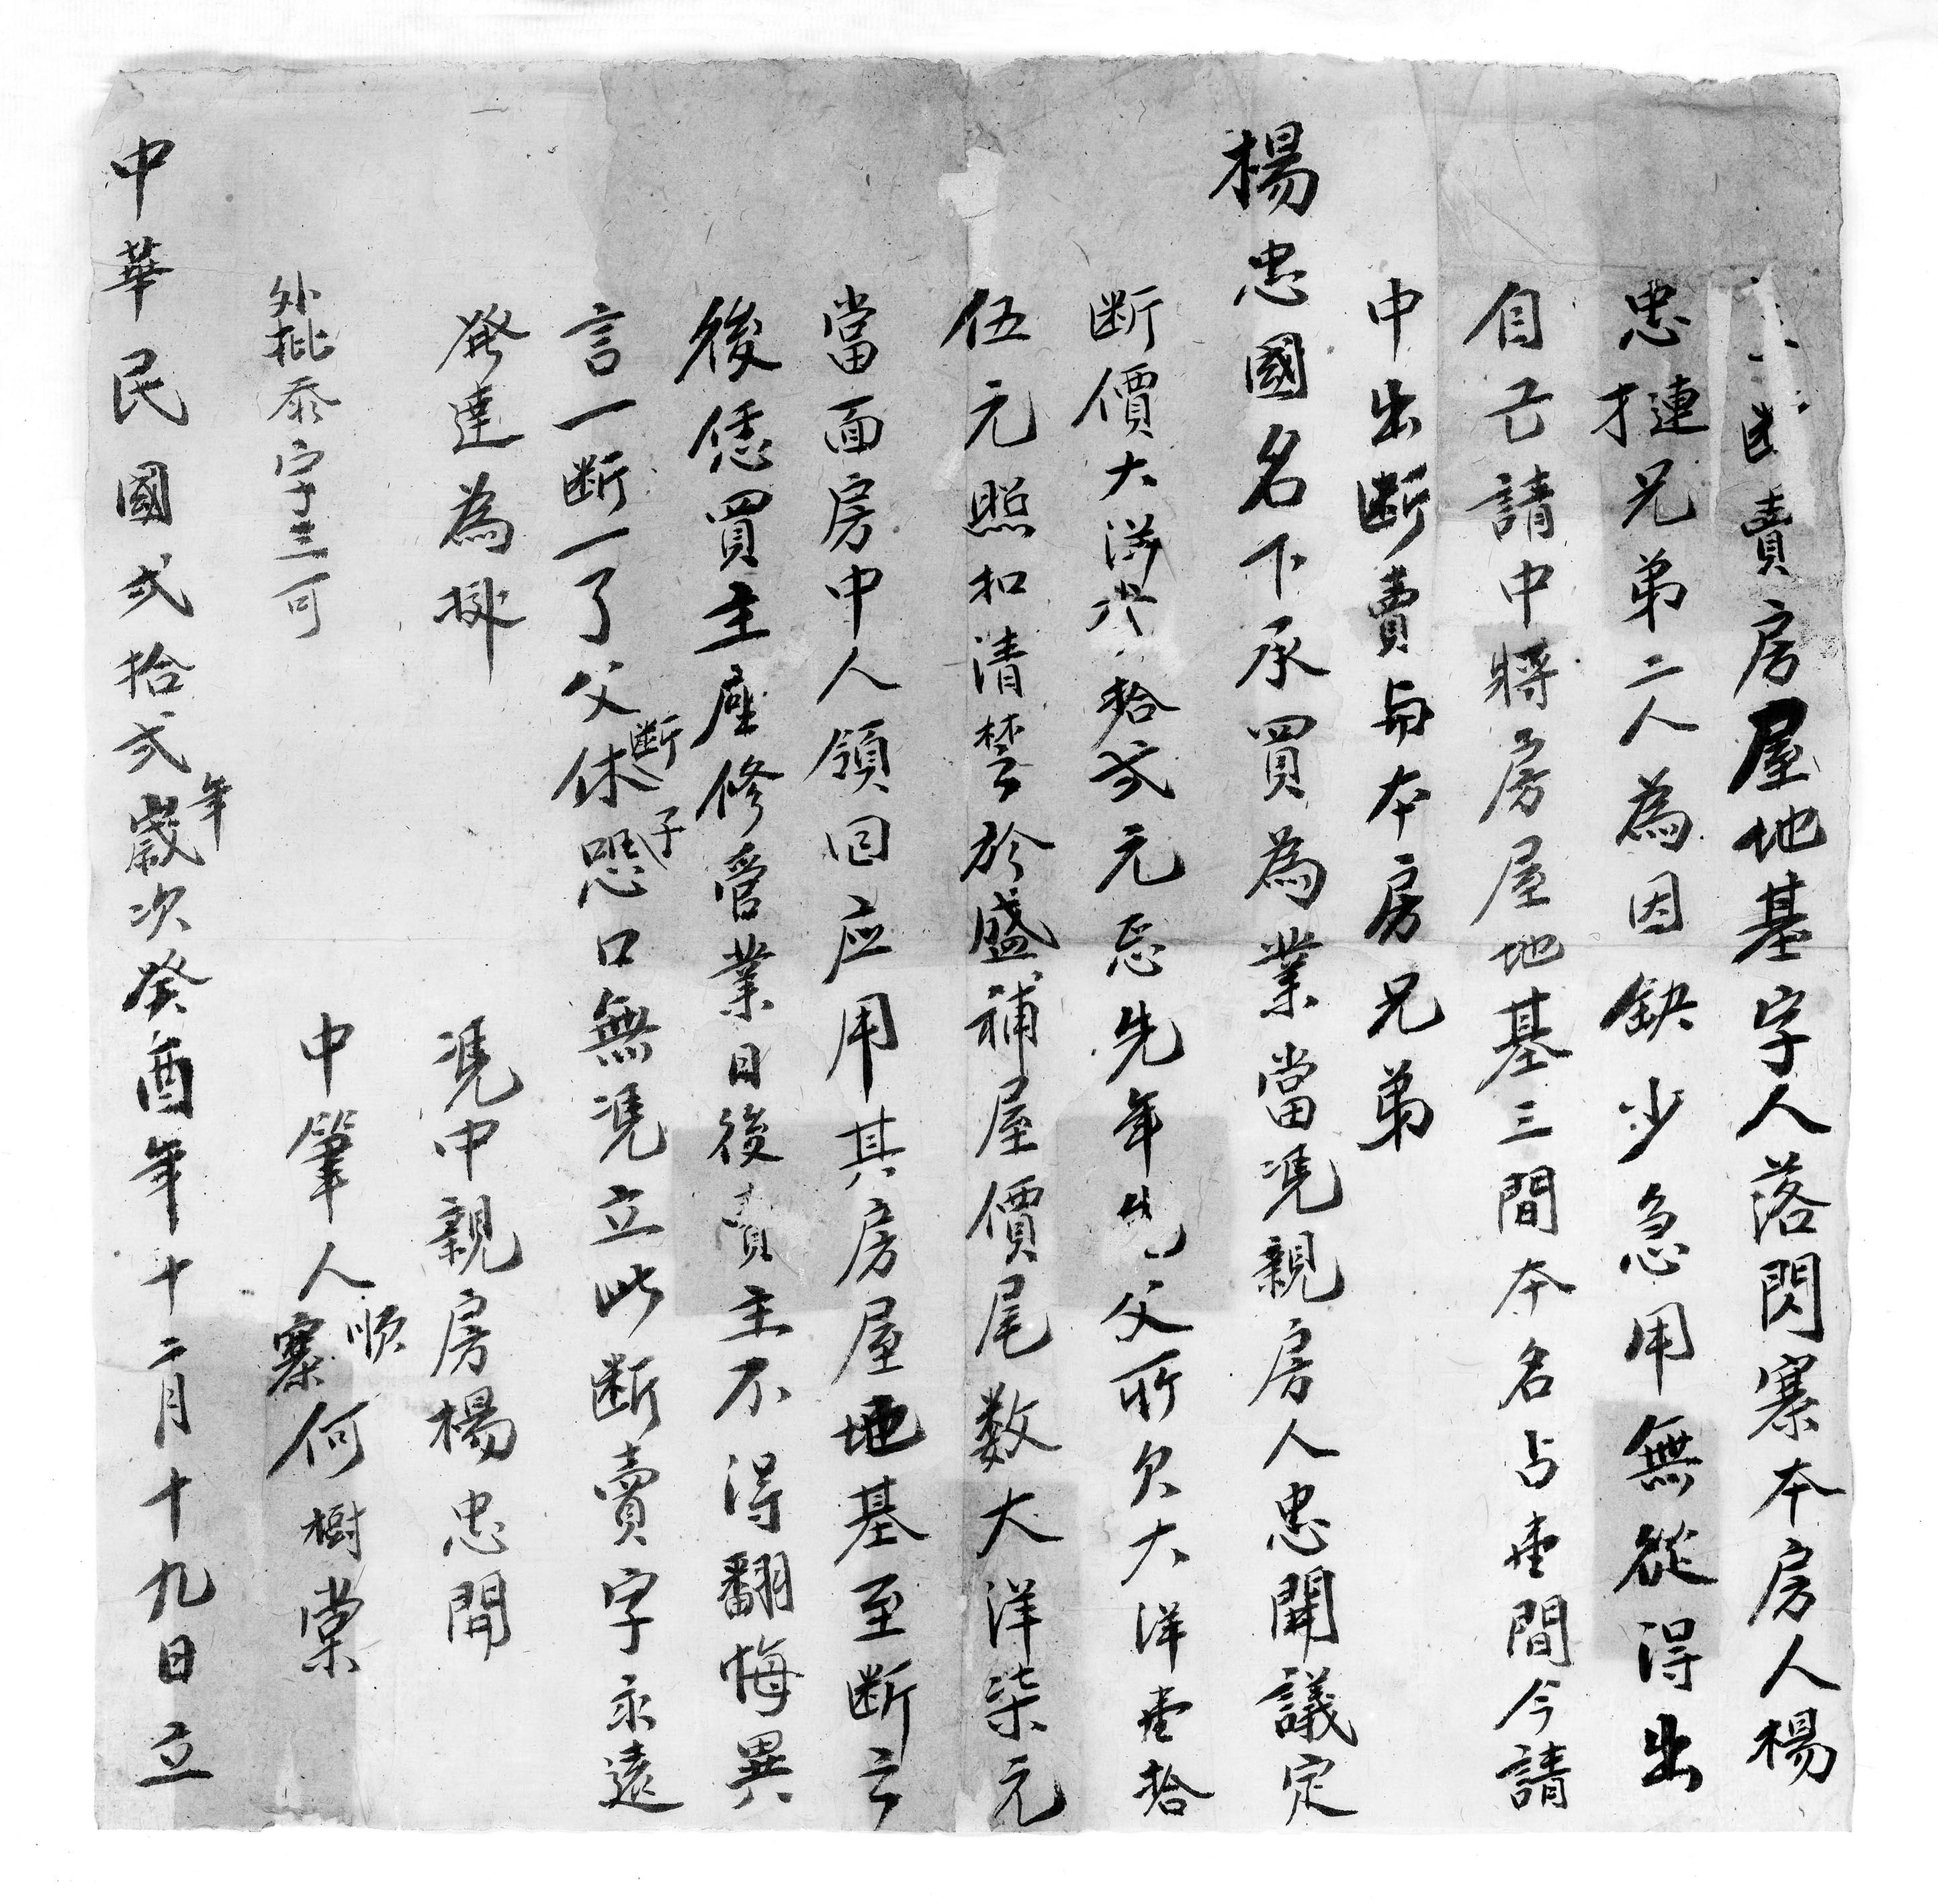 賣房屋地基字人落閃寨本房人楊
忠才搥兄弟二人為因缺少急用無從得出
自己請中將房屋地基三間本名占壹間今請
中出断賣與本房兄弟
楊忠國名下承買為業當凴親房人忠開議定
断價大洋 拾弍元 先年先父所欠大洋壹拾
伍元照扣清楚於盛補屋價尾数大洋柒元
當面房中人領回应用其房屋地基至断之
後恁買主座修管業日後賣主不得翻悔異
言一断一了父断子休恐口無凴立此断賣字永遠
發達為據
凴中親房楊忠開
中筆人順寨何樹棠
外批添字三可
中華民國弍拾弍年歲次癸酉年十二月十九日立